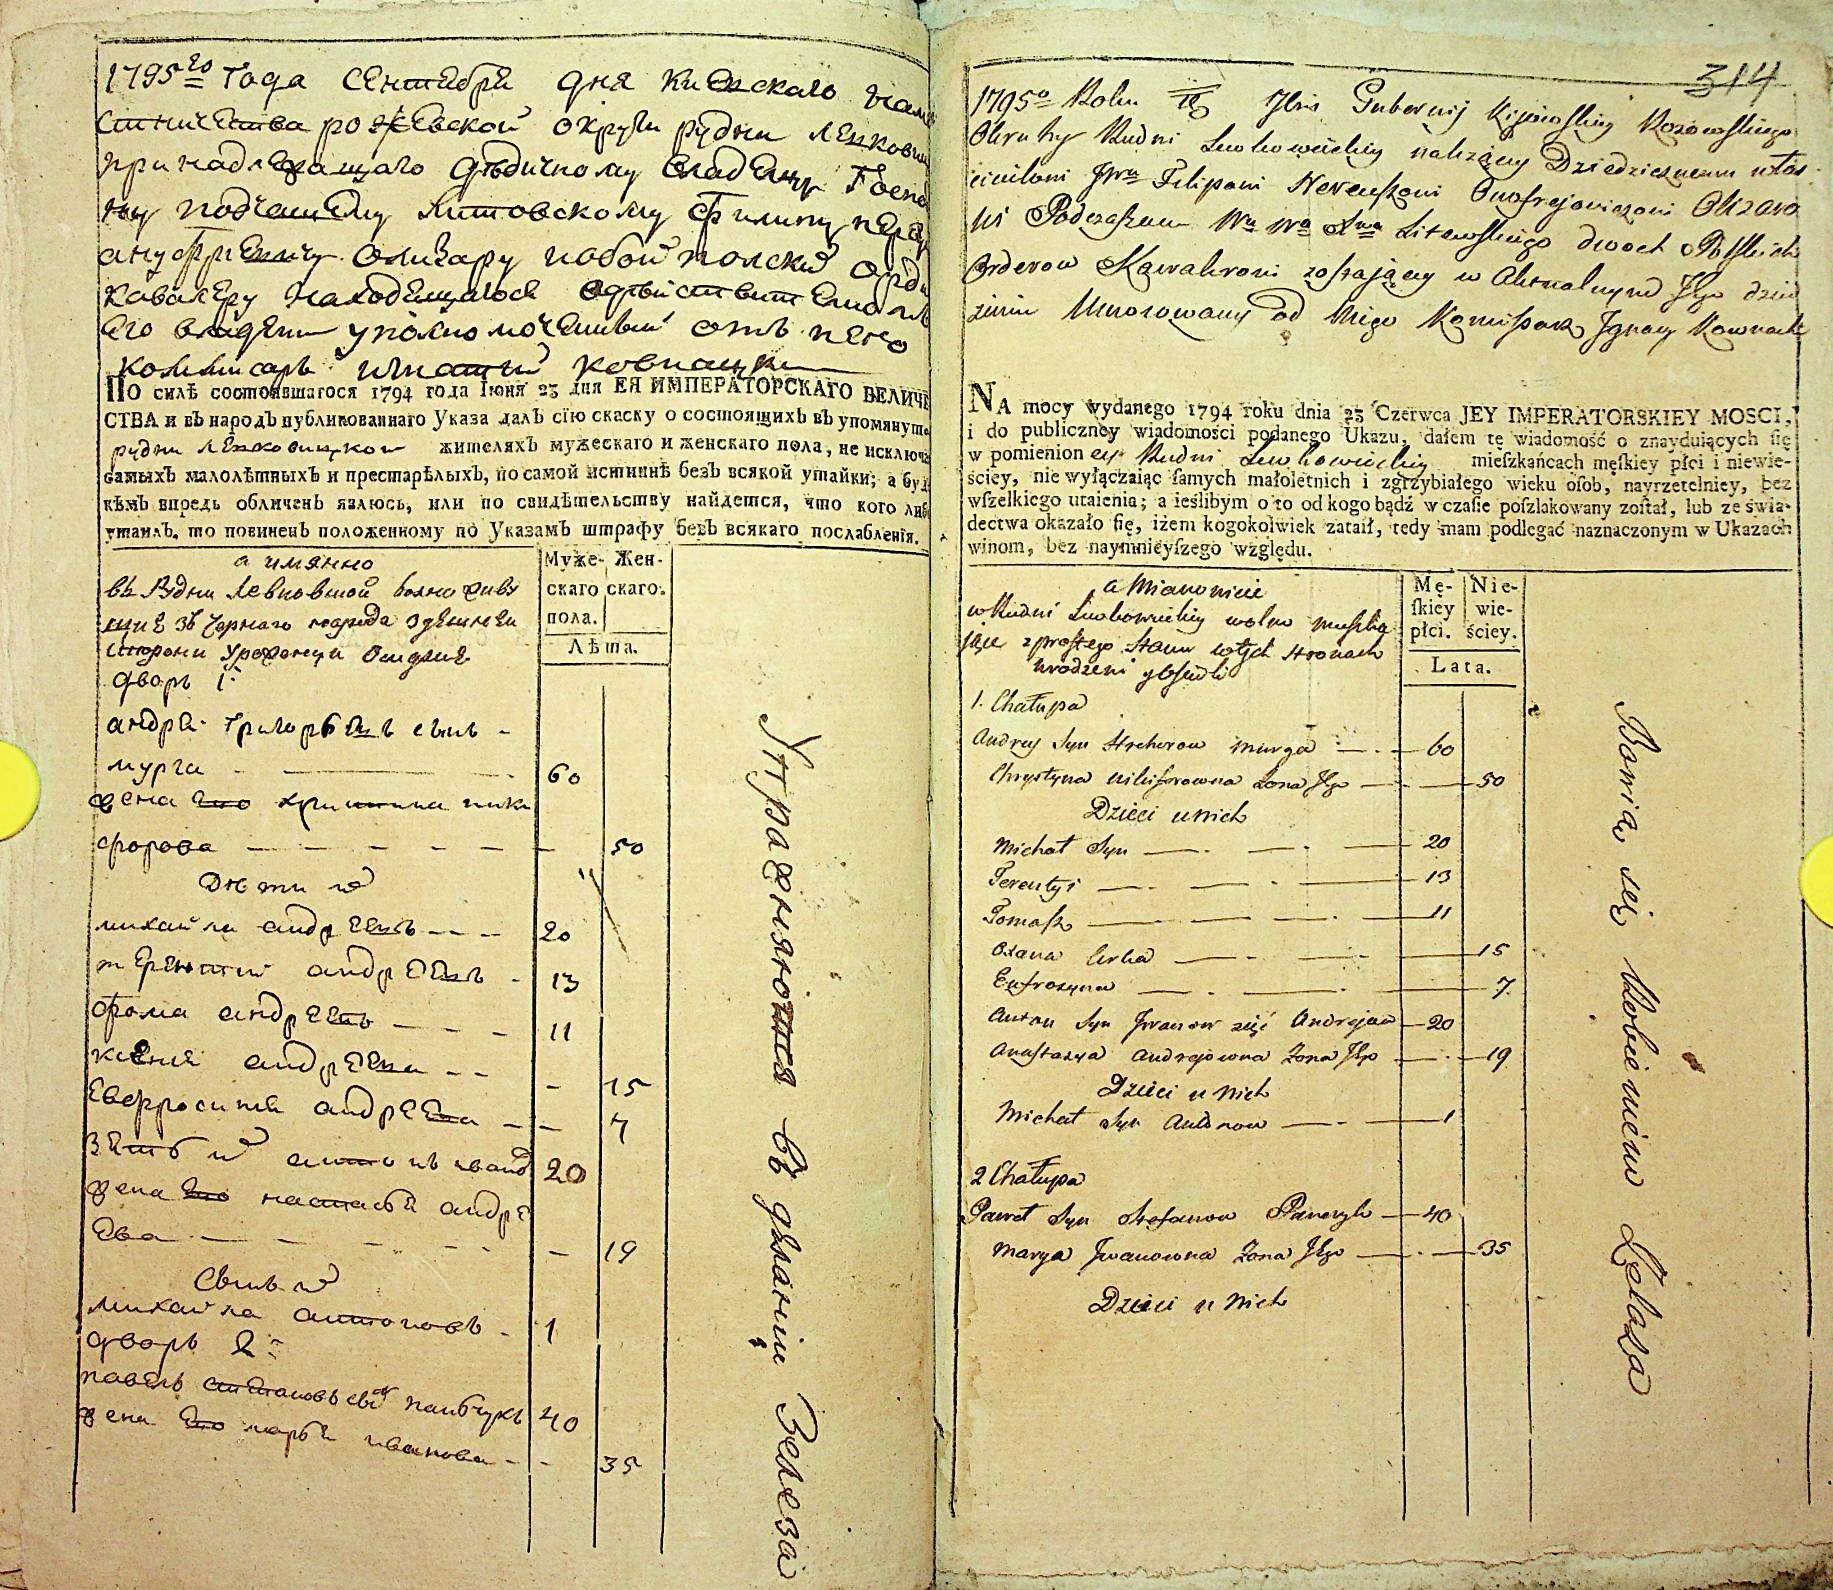 1795го года сентебрѣ дня киевскаго наме
стничества рожевской округи рудни левкови
принадлежащаго дѣдичному владенцу
подчашему литовскому филипу нерею
ануфриевичу олизару обой полскй орде
кавалеру находещагося вдѣйствительномъ
его владени уполномоченный отъ него
коммисаръ игнатий ковнацки
ПО силѣ состоявшагося 1794 года Іюня 23 дня ЕЯ ИМПЕРАТОРСКАГО ВЕЛИЧЕ
СТВА и въ народъ публикованнаго Указа далъ сію скаску о состоящихъ въ упомянуто
рудни левковицкои жителяхъ мужескаго и женскаго пола, не исключа
самыхъ малолѣтныхъ и престарѣлыхъ, по самой истиннѣ безъ всякой утайки; а буд
кѣмъ впредь обличенъ явлюсь, или по свидѣтельству найдется, что кого либо
утаилъ, то повиненъ положенному по Указамъ штрафу безъ всякаго послабленія.
а имянно
Муже- Жен-
скаго скаго.
пола.
Лѣта.
въ Рудни волно живу
щие зъ чорнаго народа здешнеи
сторони уроженци
дворъ 1
андрей григорьевъ сынъ -
мурга 60
жена его христина ники
форова 50
Дети ихъ
михайла андреевъ 20
терентий андреевъ 13
фома андреевъ 11
ксения андреева - 15
евфросиния андреева - 7
зять ихъ антонъ ивановъ 20
жена его настасья андре
ева - 19
Сынъ ихъ
михайла антоновъ 1
дворъ 2:
павелъ степановъ сынъ 40
жена его марья иванова - 35
Упражняются въ деланіи Зелеза
314
1795o Roku Gubernij Kijowskiey
Okruhy Rudni Lewkowickiey należącey Dziedzicznemu włas
cicielowi Filipowi Nereuszowi Onofrejowiczowi Olizaro
wi Podczaszemu Litewskiego dwoch Polskich
Orderow Kawalerowi zostającey w Aktualnym Jego dzier
żeniu Umocowany od Niego Komisarz Ignacy Kownacki
NA mocy wydanego 1794 roku dnia 23 Czerwca JEY IMPERATORSKIEY MOSCI,
i do publiczney wiadomości podanego Ukazu, dałem tę wiadomość o znayduiących ſię
w pomienioney Rudni Lewkowickiey mieſzkańcach męſkiey płci i niewie-
ściey, nie wyłączaiąc ſamych małoletnich i zgrzybiałego wieku oſob, nayrzetelniey, bez
wſzelkiego utaienia; a ieślibym o to od kogo bądź w czaſie poſzlakowany zoſtał, lub ze świa-
dectwa okazało ſię, iżem kogokolwiek zataił, tedy mam podlegać naznaczonym w Ukazach
winom, bez naymnieyſzego względu.
a Mianowicie
Mę- Nie-
ſkiey wie-
płci. ściey.
Lata.
w Rudni Lewkowickiey wolno mieszka
jące z prostego Stanu w tych Stronach
urodzeni y osiedli
1. Chałupa
Andrey Syn Hrehorow Murga 60
Chrystyna Nikiforowna Żona Jego 50
Dzieci u nich
Michał Syn 20
Terentyi 13
Tomasz 11
Oxana Corka 15
Eufrozyna 7
Anton Syn Iwanow zięć Andrejow 20
Anastazya Andrejowna Żona Jego 19
Dzieci u Nich
Michał Syn Antonow 1
2 Chałupa
Paweł Syn Stefanow 40
Marya Iwanowna Żona Jego 35
Dzieci u Nich
Bawią się Robieniem Żelaza